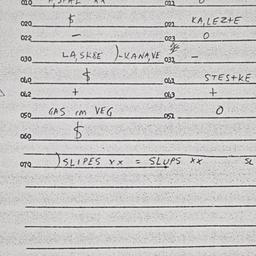 020 $ 021 KA,LEZ+E
022 – 023 0
030 LA,SKBE )-KANA,VE 031 –
060 $ 061 STES+KE
062 + 063 +
050 GAS IM VEG 051 0
060 $
070 )SLIPES XX = SLUPS XX SL